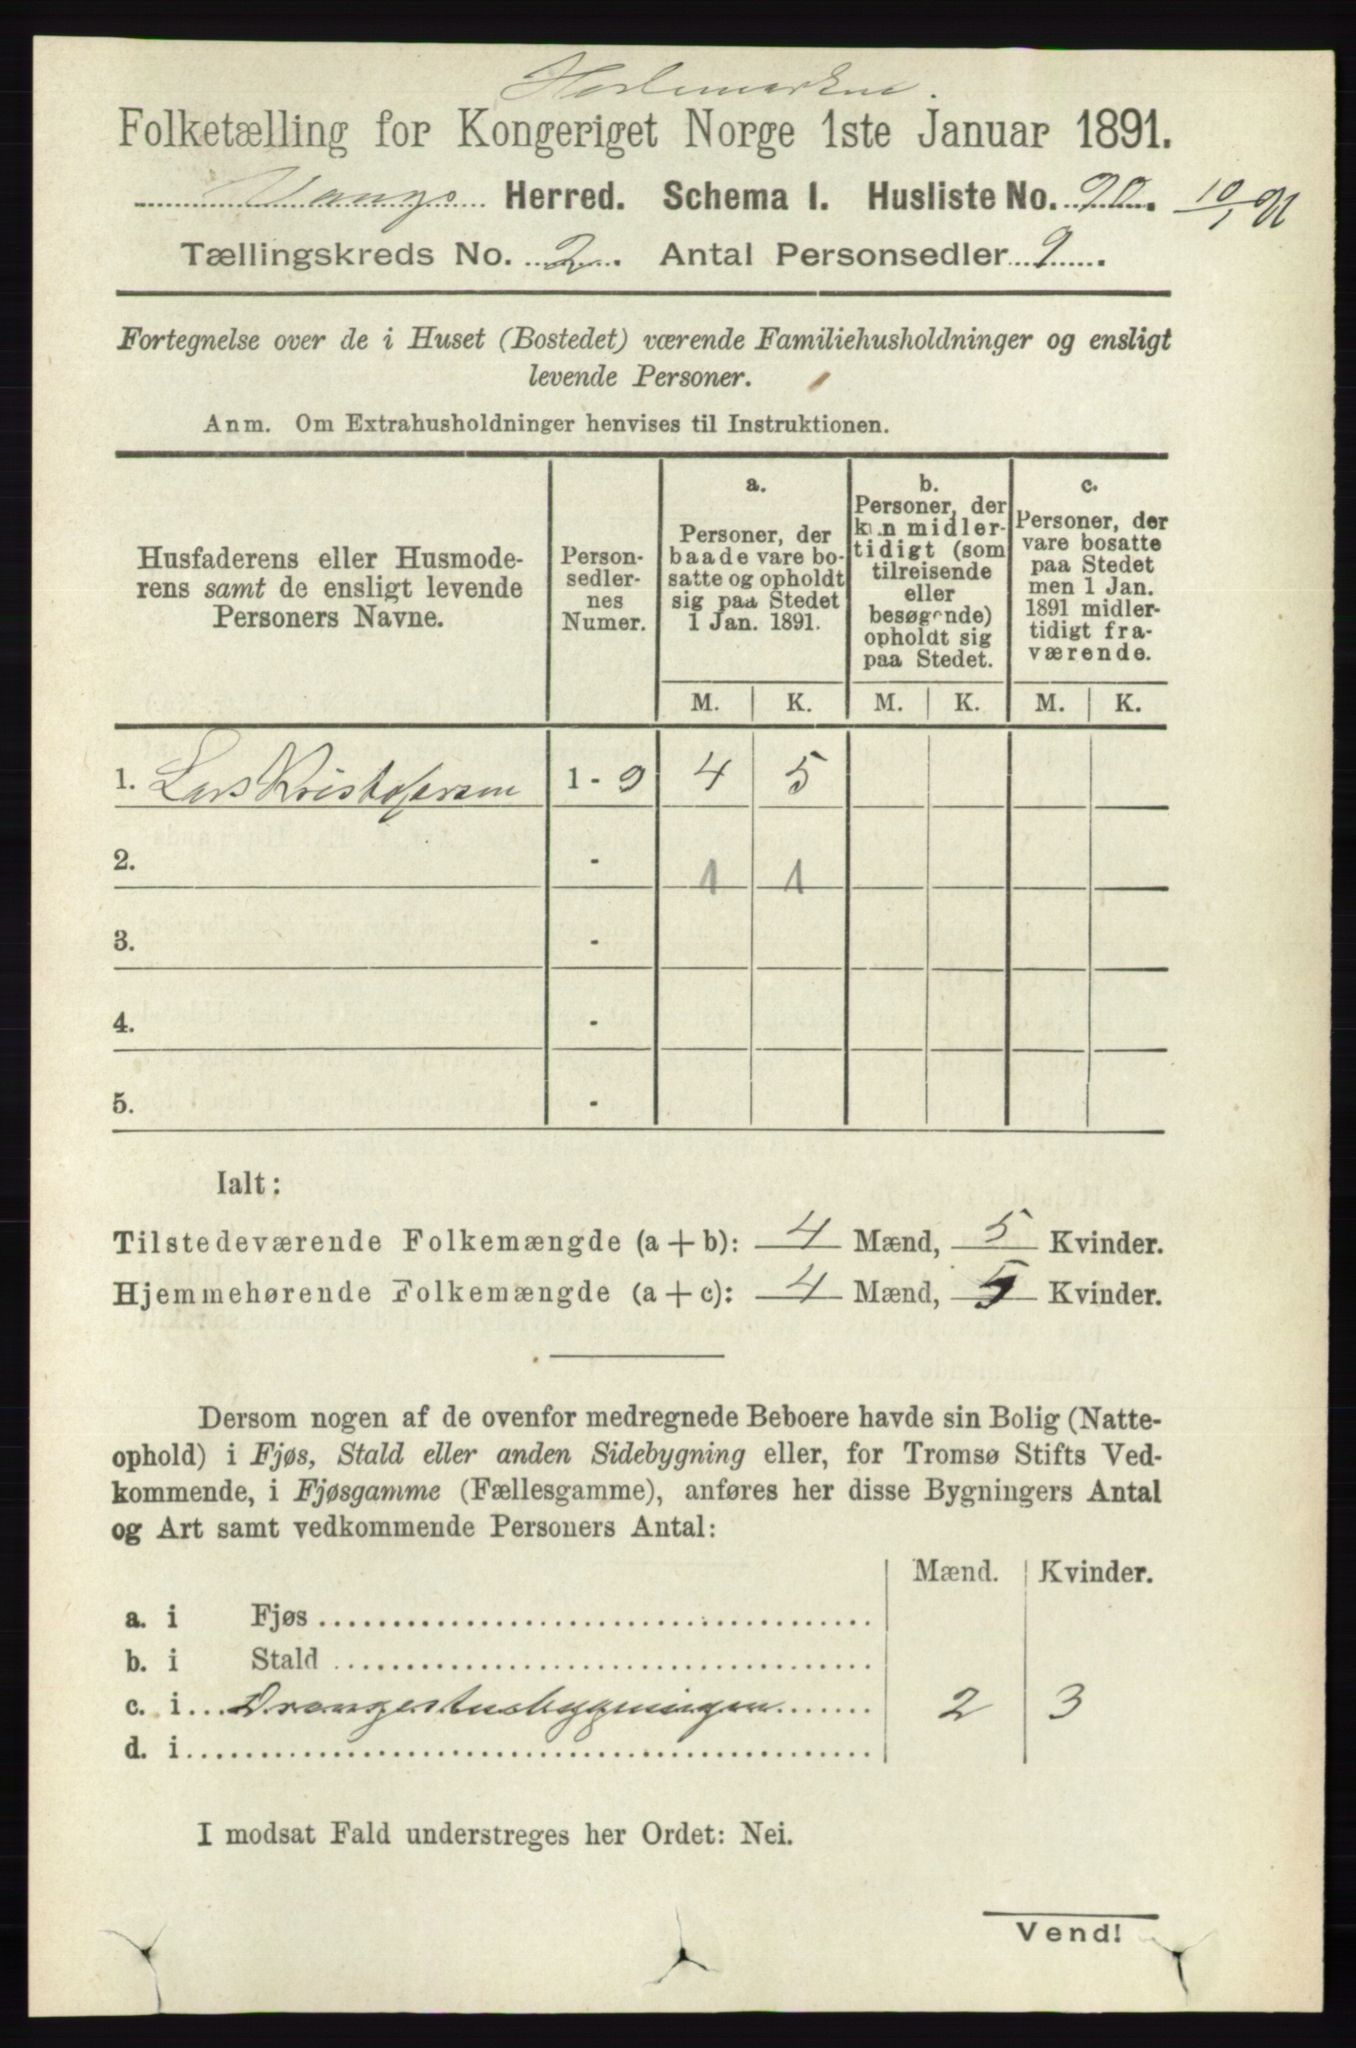 Folketælling for Kongeriget Norge 1ste Januar 1891.
Vangs Herred. Schema I. Husliste No. 90. 10/1 91
Tællingskreds No. 2. Antal Personsedler 9.
Fortegnelse over de i Huset (Bostedet) værende Familiehusholdninger og ensligt
levende Personer.
Anm. Om Extrahusholdninger henvises til Instruktionen.
Husfaderens eller Husmode-
rens samt de ensligt levende
Personers Navne.
Person-
sedler-
nes
Numer.
a.
Personer, der
baade vare bo-
satte og opholdt
sig paa Stedet
1 Jan. 1891.
b.
Personer, der
kun midler-
tidigt (som
tilreisende
eller
besøgende)
opholdt sig
paa Stedet.
c.
Personer, der
vare bosatte
paa Stedet
men 1 Jan.
1891 midler-
tidigt fra-
værende.
M. K. M. K. M. K.
1. Lars Kristofersen 1 - 9 4 5
2. - 1 1
3. -
4. -
5. -
Ialt:
Tilstedeværende Folkemængde (a + b): 4 Mænd, 5 Kvinder.
Hjemmehørende Folkemængde (a + c): 4 Mænd, 5 Kvinder.
Dersom nogen af de ovenfor medregnede Beboere havde sin Bolig (Natte-
ophold) i Fjøs, Stald eller anden Sidebygning eller, for Tromsø Stifts Ved-
kommende, i Fjøsgamme (Fællesgamme), anføres her disse Bygningers Antal
og Art samt vedkommende Personers Antal:
Mænd. Kvinder.
a. i Fjøs
b. i Stald
c. i Drengestuebygningen 2 3
d. i
I modsat Fald understreges her Ordet: Nei.
Vend!